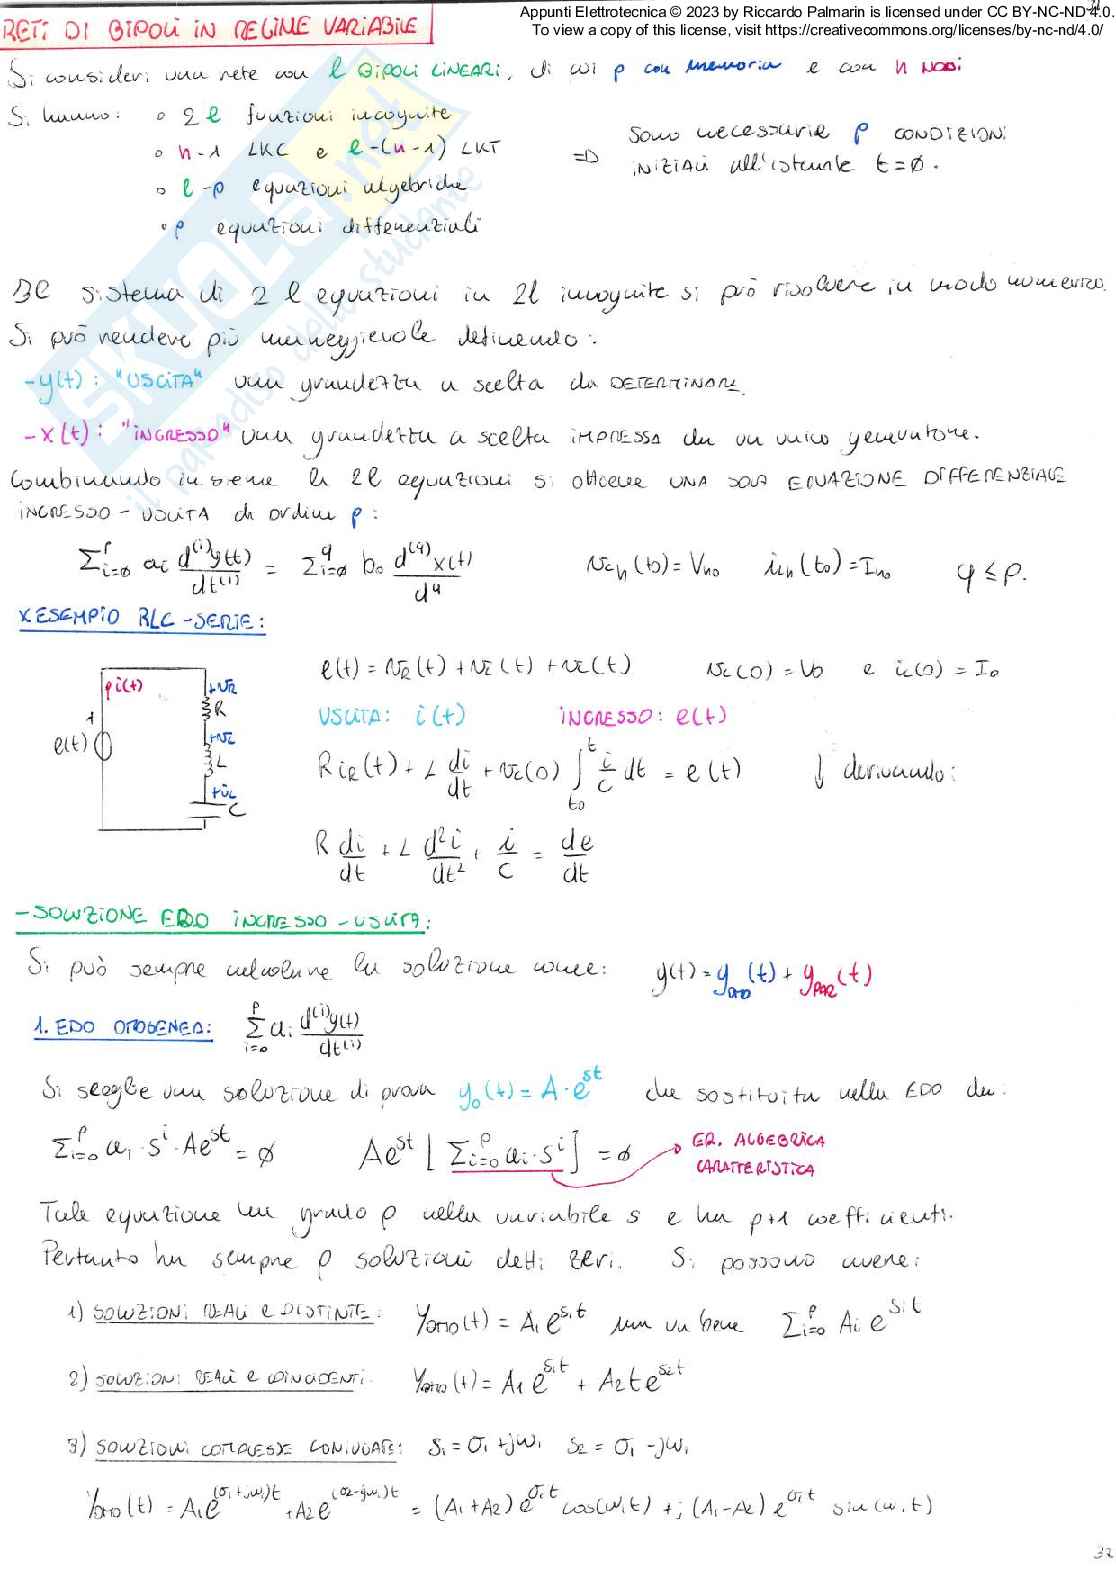 Appunti Elettrotecnica © 2023 by Riccardo Palmarin is licensed under CC BY-NC-ND 4.0.
To view a copy of this license, visit https://creativecommons.org/licenses/by-nc-nd/4.0/
RETI DI BIPOLI IN REGIME VARIABILE
Si consideri una rete con l BIPOLI LINEARI, di cui p con memoria e con n NODI
Si hanno: • 2l funzioni incognite
• n-1 LKC e l-(n-1) LKT
• l-p equazioni algebriche
• p equazioni differenziali
=> Sono necessarie p CONDIZIONI
INIZIALI all'istante t=∅.
Il sistema di 2l equazioni in 2l incognite si può risolvere in modo numerico.
Si può rendere più maneggievole definendo:
-y(t): "USCITA" una grandezza a scelta da DETERMINARE
-x(t): "INGRESSO" una grandezza a scelta IMPRESSA da un unico generatore.
Combinando insieme le 2l equazioni si ottiene UNA SOLA EQUAZIONE DIFFERENZIALE
INGRESSO-USCITA di ordine p:
Σ_{i=∅}^{p} ai d^{(i)}y(t)/dt^{(i)} = Σ_{i=∅}^{q} b₀ d^{(q)}x(t)/d^{q} v_{ch}(t₀)=V_{h0} i_{lh}(t₀)=I_{h0} q≤p.
xESEMPIO RLC-SERIE:
i(t)
+vR
R
+vL
L
+vc
C
+
e(t)
e(t) = vR(t) + vL(t) + vc(t) vc(0)=V0 e iL(0)=I₀
USCITA: i(t) INGRESSO: e(t)
R iR(t) + L di/dt + vc(0) ∫_{t₀}^{t} i/C dt = e(t) ↓ derivando:
R di/dt + L d²i/dt² + i/C = de/dt
-SOLUZIONE EDO INGRESSO-USCITA:
Si può sempre calcolare la soluzione come: y(t) = y_{OMO}(t) + y_{PAR}(t)
1. EDO OMOGENEA: Σ_{i=0}^{p} ai d^{(i)}y(t)/dt^{(i)}
Si sceglie una soluzione di prova y₀(t) = A·e^{st} che sostituita nella EDO da:
Σ_{i=0}^{p} ai·s^{i}·Ae^{st} = ∅ Ae^{st} [Σ_{i=0}^{p} ai·s^{i}] = ∅ EQ. ALGEBRICA
CARATTERISTICA
Tale equazione ha grado p nella variabile s e ha p+1 coefficienti.
Pertanto ha sempre p soluzioni detti zeri. Si possono avere:
1) SOLUZIONI REALI E DISTINTE: y_{OMO}(t) = A₁e^{s₁t} Σ_{i=0}^{p} Ai e^{sit}
2) SOLUZIONI REALI E COINCIDENTI: y_{OMO}(t) = A₁e^{s₁t} + A₂te^{s₂t}
3) SOLUZIONI COMPLESSE CONIUGATE: s₁ = σ₁+jω₁ s₂ = σ₁-jω₁
y_{OMO}(t) = A₁e^{(σ₁+jω₁)t} + A₂e^{(σ₂-jω₁)t} = (A₁+A₂)e^{σ₁t} cos(ω₁t) + j(A₁-A₂)e^{σ₁t} sin(ω₁t)
SKUOLA.net
il paradiso dello studente